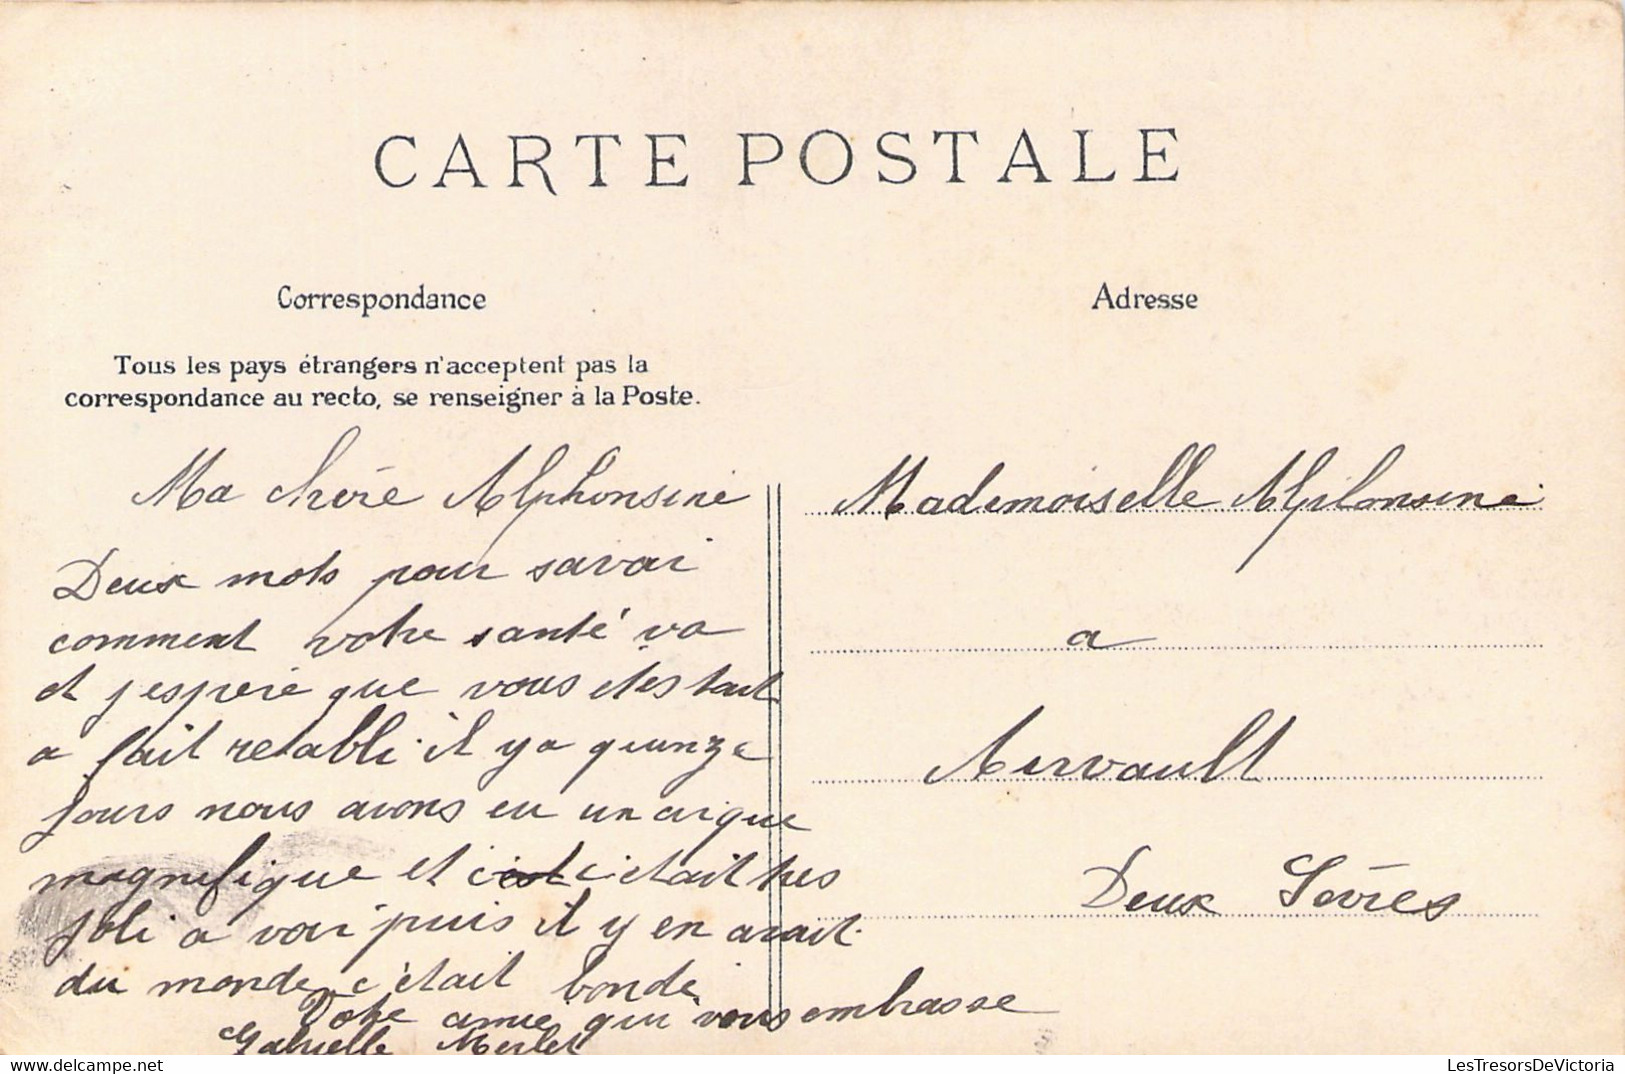 CARTE POSTALE
Correspondance
Tous les pays étrangers n'acceptent pas la
correspondance au recto, se renseigner à la Poste.
Ma chère Alphonsine
Deux mots pour savoir
comment votre santé va
et j espere que vous etes tout
a fait retabli il y a quinze
jours nous avons eu un cirque
magnifique et c'est c'etait tres
joli a voir puis il y en avait
du monde c'était bondé
Votre amie qui vous embrasse
Gabrielle Merlet
Adresse
Mademoiselle Alphonsine
a
Airvault
Deux Sèvres
LesTresorsDeVictoria